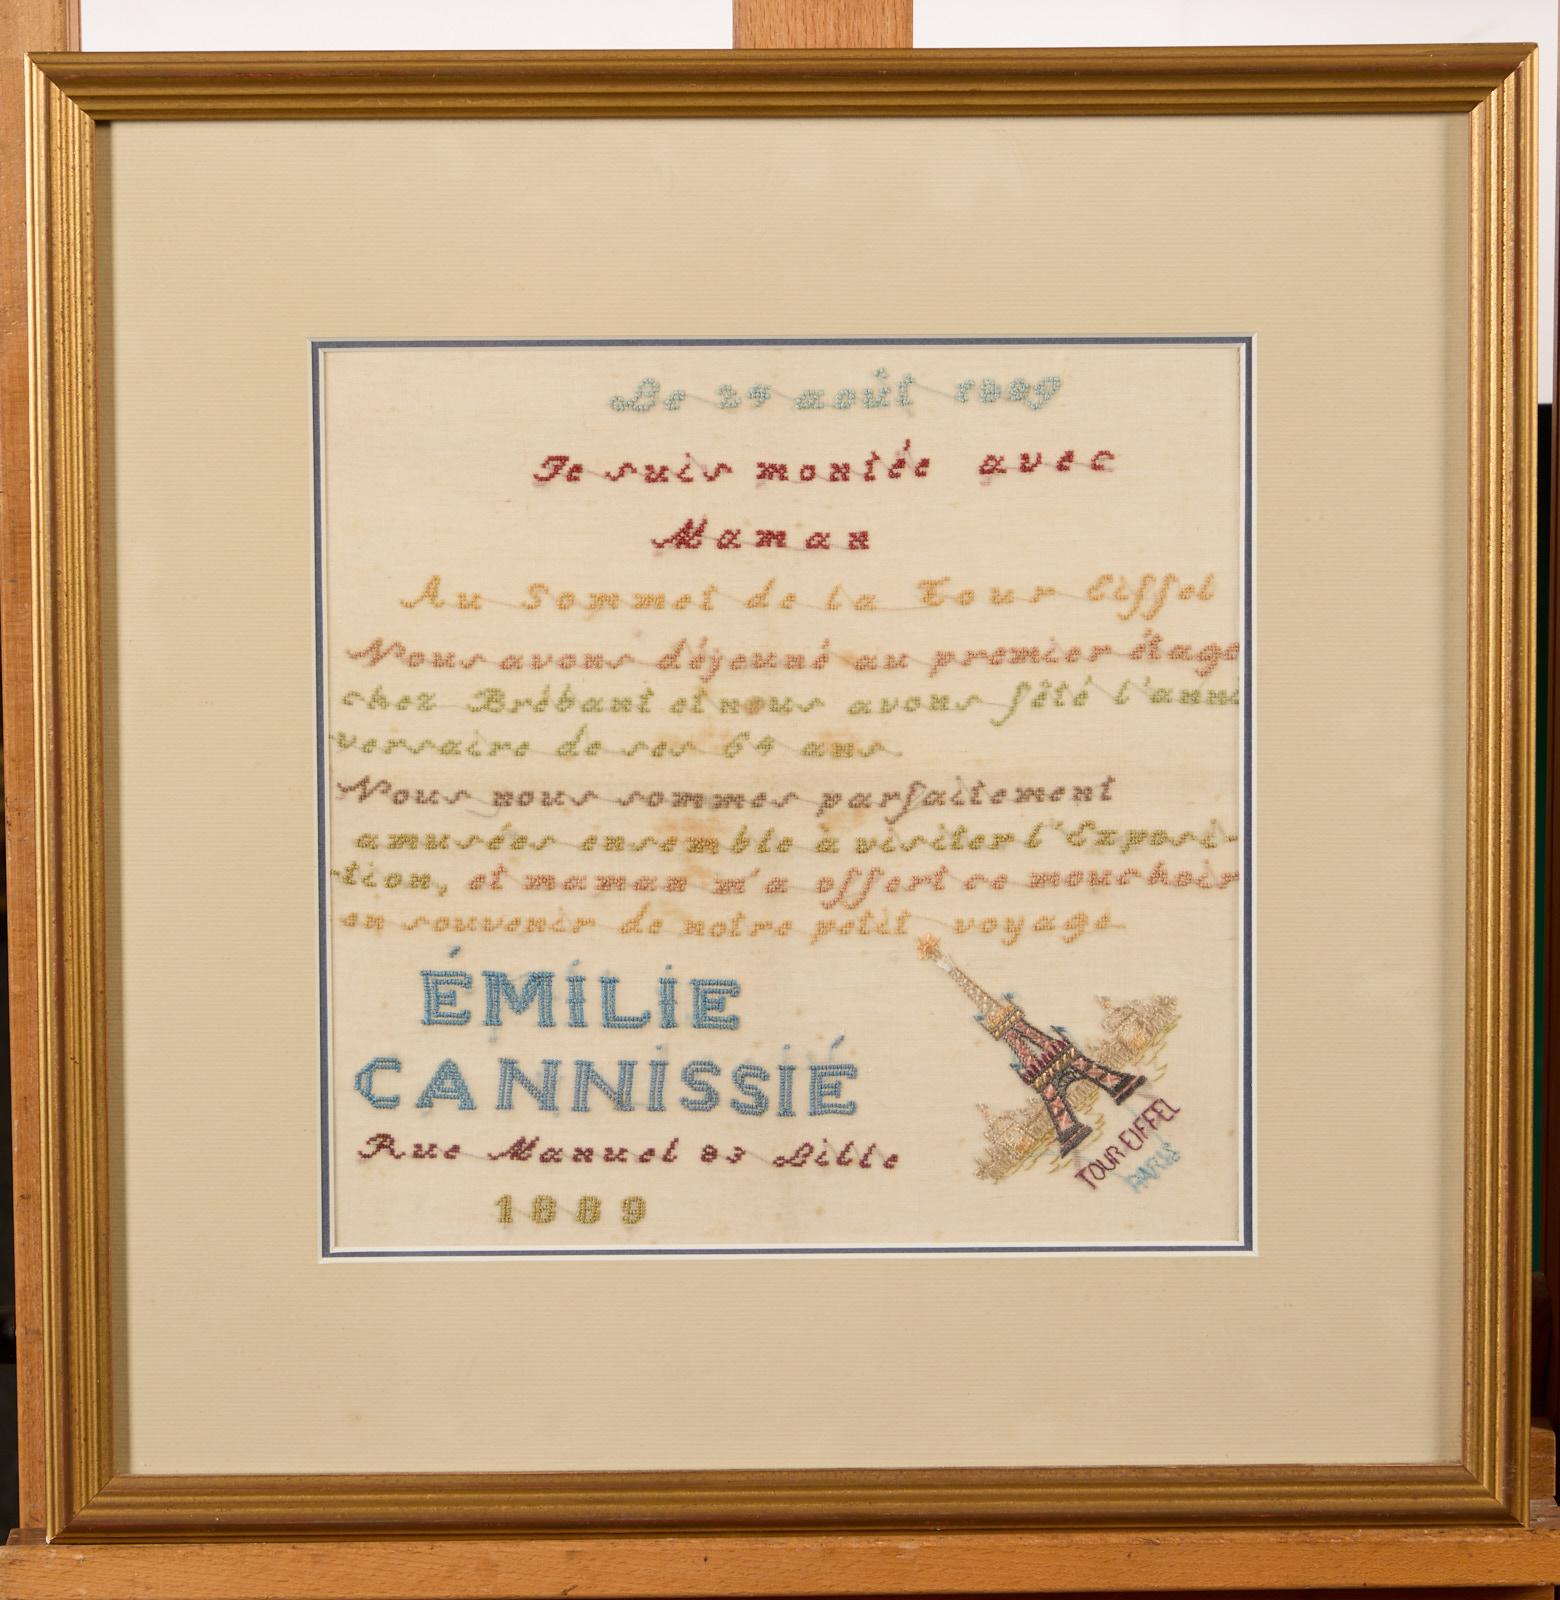 Le 24 août 1889
Je suis montée avec
Maman
Au Sommet de la Tour Eiffel
Nous avons déjeuné au premier étage
chez Brébant et nous avons fêté l'anni
versaire de ses 64 ans.
Nous nous sommes parfaitement
amusées ensemble à visiter l'Exposi-
tion, et maman m'a offert ce mouchoir
en souvenir de notre petit voyage.
ÉMILIE
CANNISSIÉ
Rue Manuel 83 Lille
1889
TOUR EIFFEL
PARIS